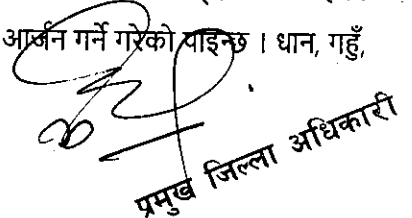 आर्जन गर्ने गरेको पाइन्छ । धान, गहुँ,
प्रमुख जिल्ला अधिकारी